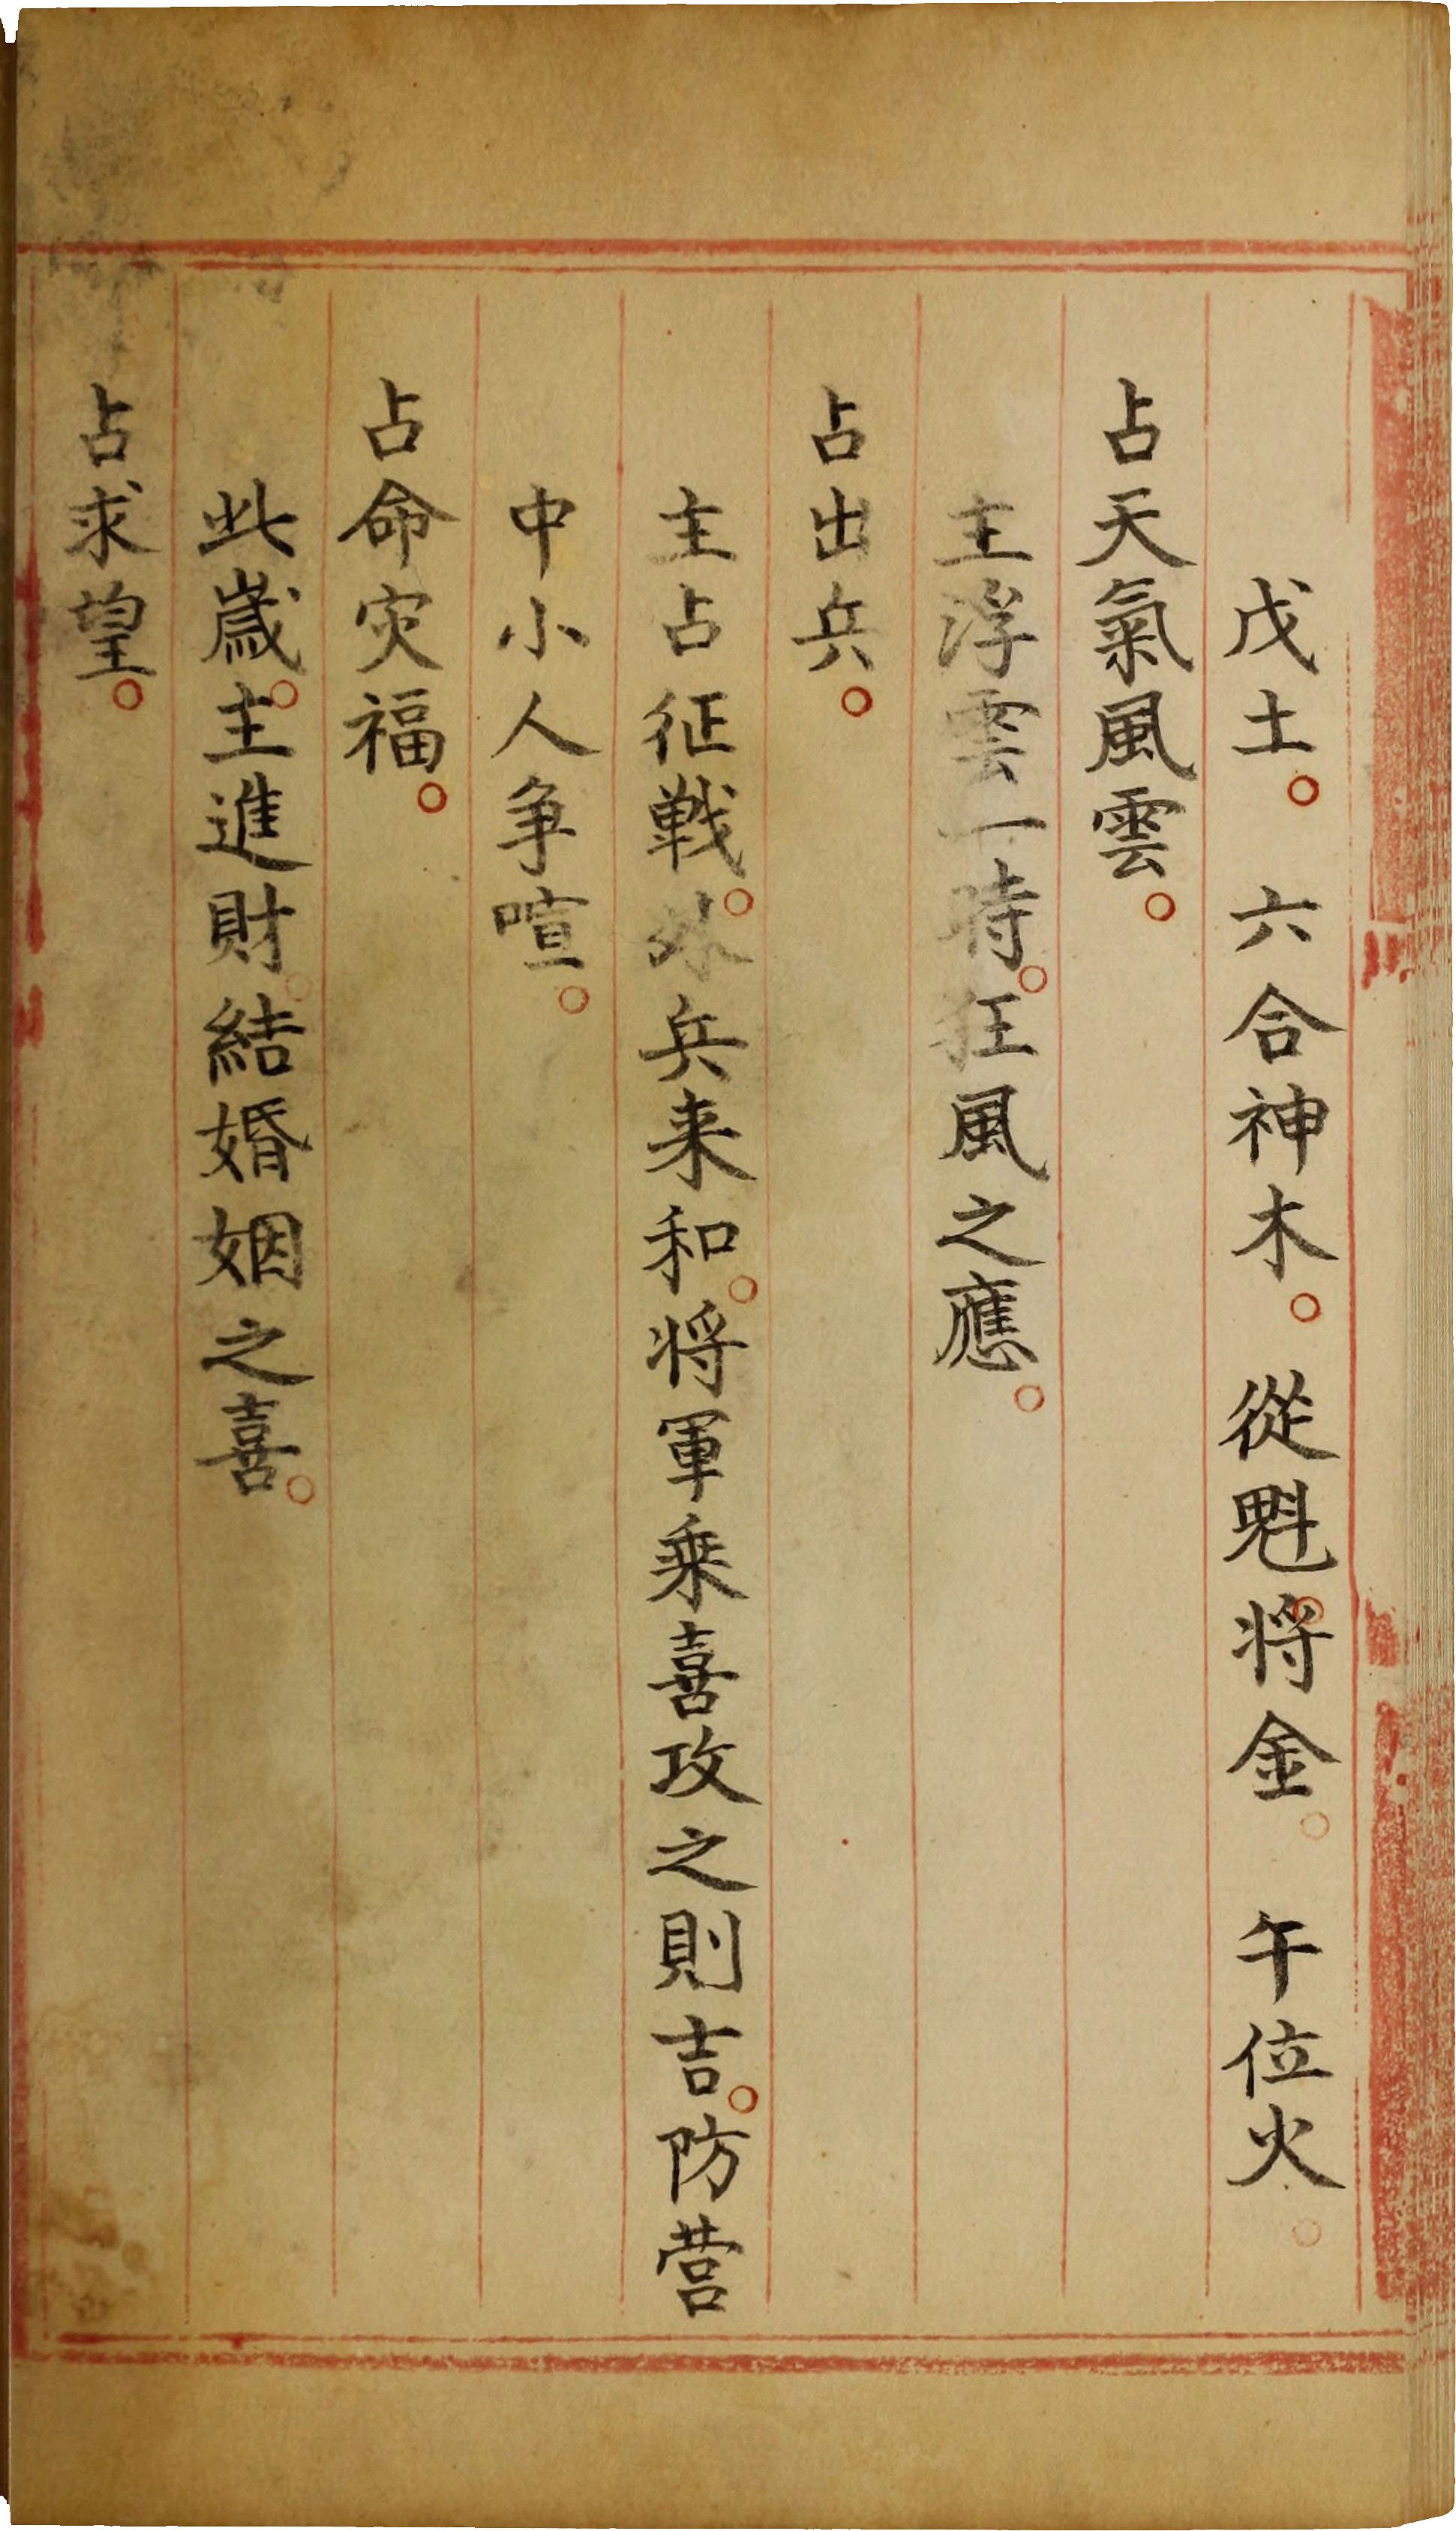 戊土。六合神木。從魁。将金。午位火。
占天氣風雲。
主浮雲一時。狂風之應。
占出兵。
主占征戦。外兵来和。将軍乗喜攻之則吉。防营
中小人争喧。
占命灾福。
此歳。主進財。結婚姻之喜。
占求望。